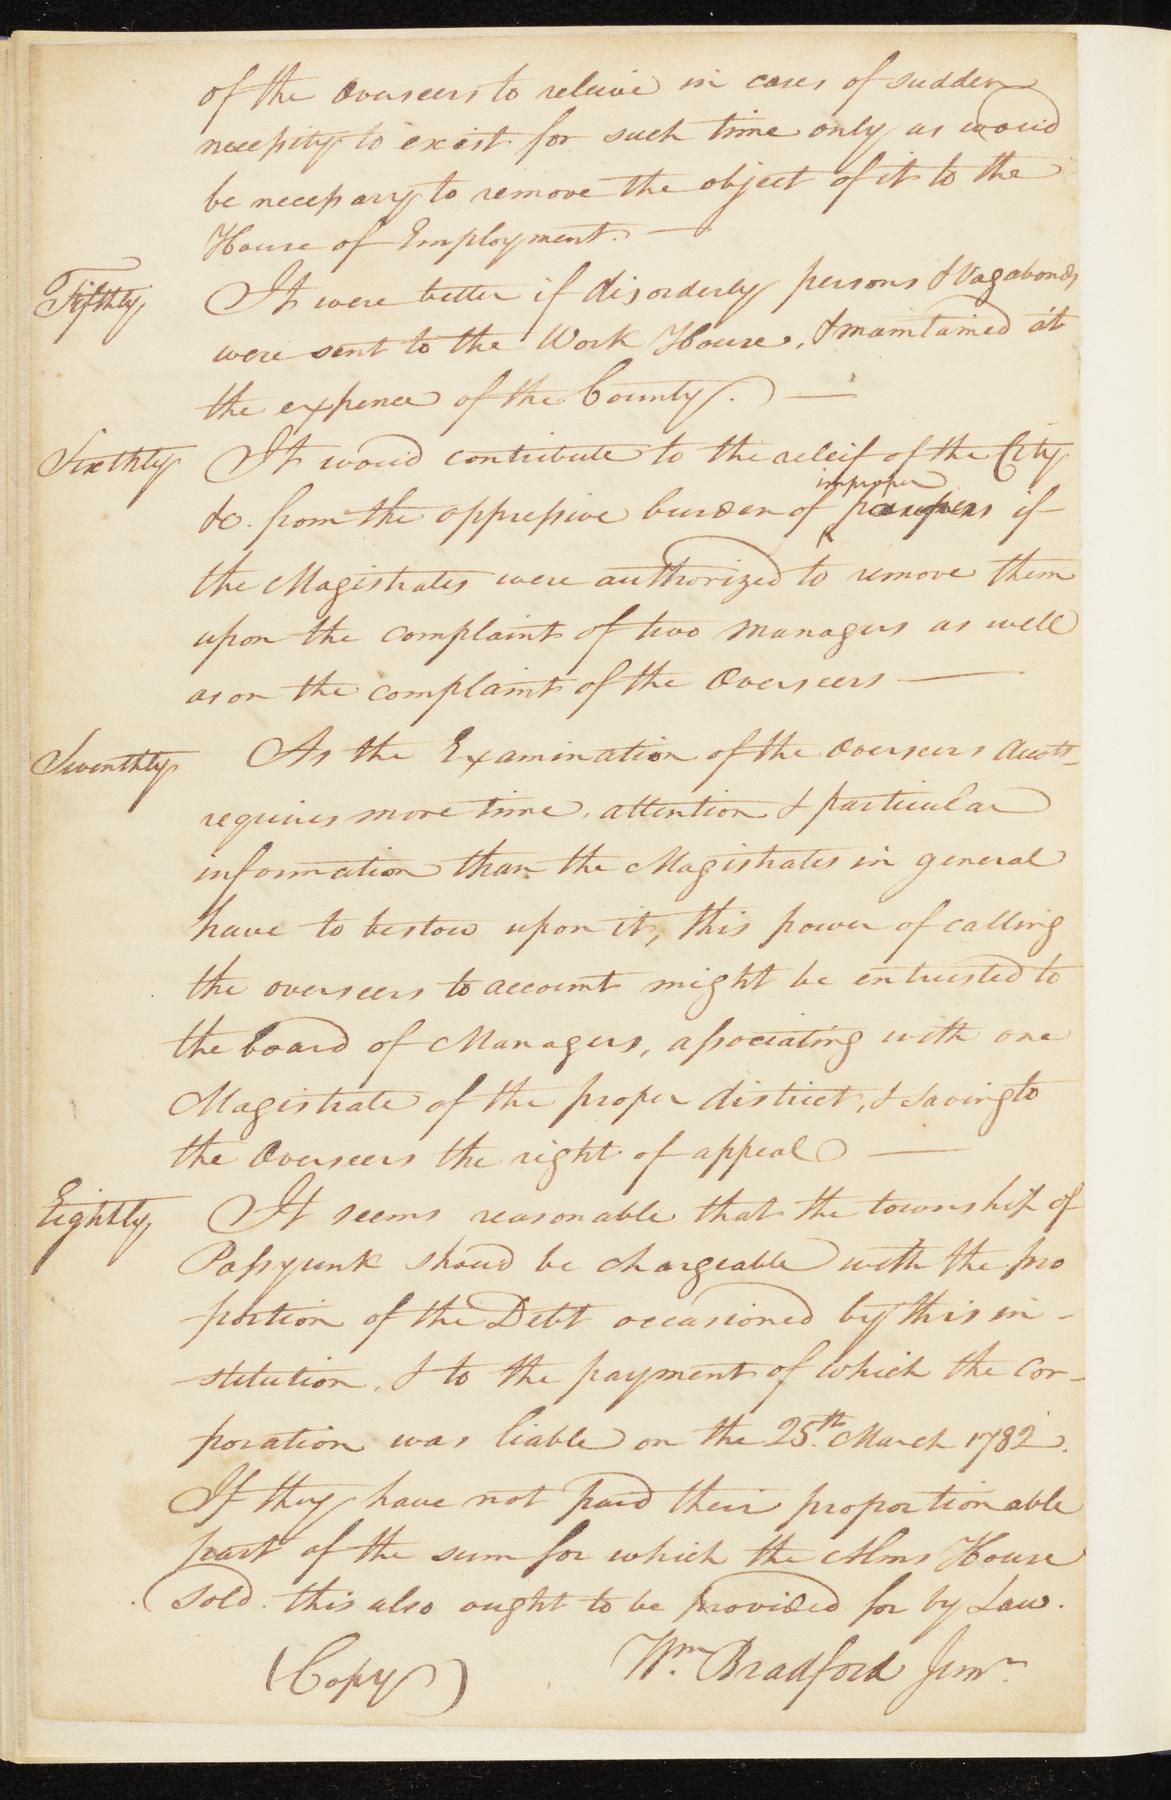 of the Overseers to releive in cases of sudden
necessity to exist for such time only as woud
be necessary to remove the object of it to the
House of Employment. —
Fifthly It were better if disorderly persons & Vagabonds
were sent to the Work House, & maintained at
the expence of the County. —
Sixthly It woud contribute to the releif of the City
improper
&c. from the oppressive burden of paupers if
the Magistrates were authorized to remove them
upon the complaint of two Managers as well
as on the complaint of the Overseers —
Seventhly As the Examination of the Overseers Accots
requires more time, attention & particular
information than the Magistrates in general
have to bestow upon it, this power of calling
the overseers to account might be entrusted to
the board of Managers, associating with one
Magistrate of the proper district, & saving to
the Overseers the right of appeal —
Eightly It seems reasonable that the township of
Passyunk shoud be chargeable with the pro
portion of the Debt occasioned by this in-
stitution, & to the payment of which the Cor-
poration was liable on the 25.th March 1782.
If they have not paid their proportionable
part of the sum for which the Alms House
sold. this also ought to be provided for by Law.
(Copy) Wm. Bradford Junr.